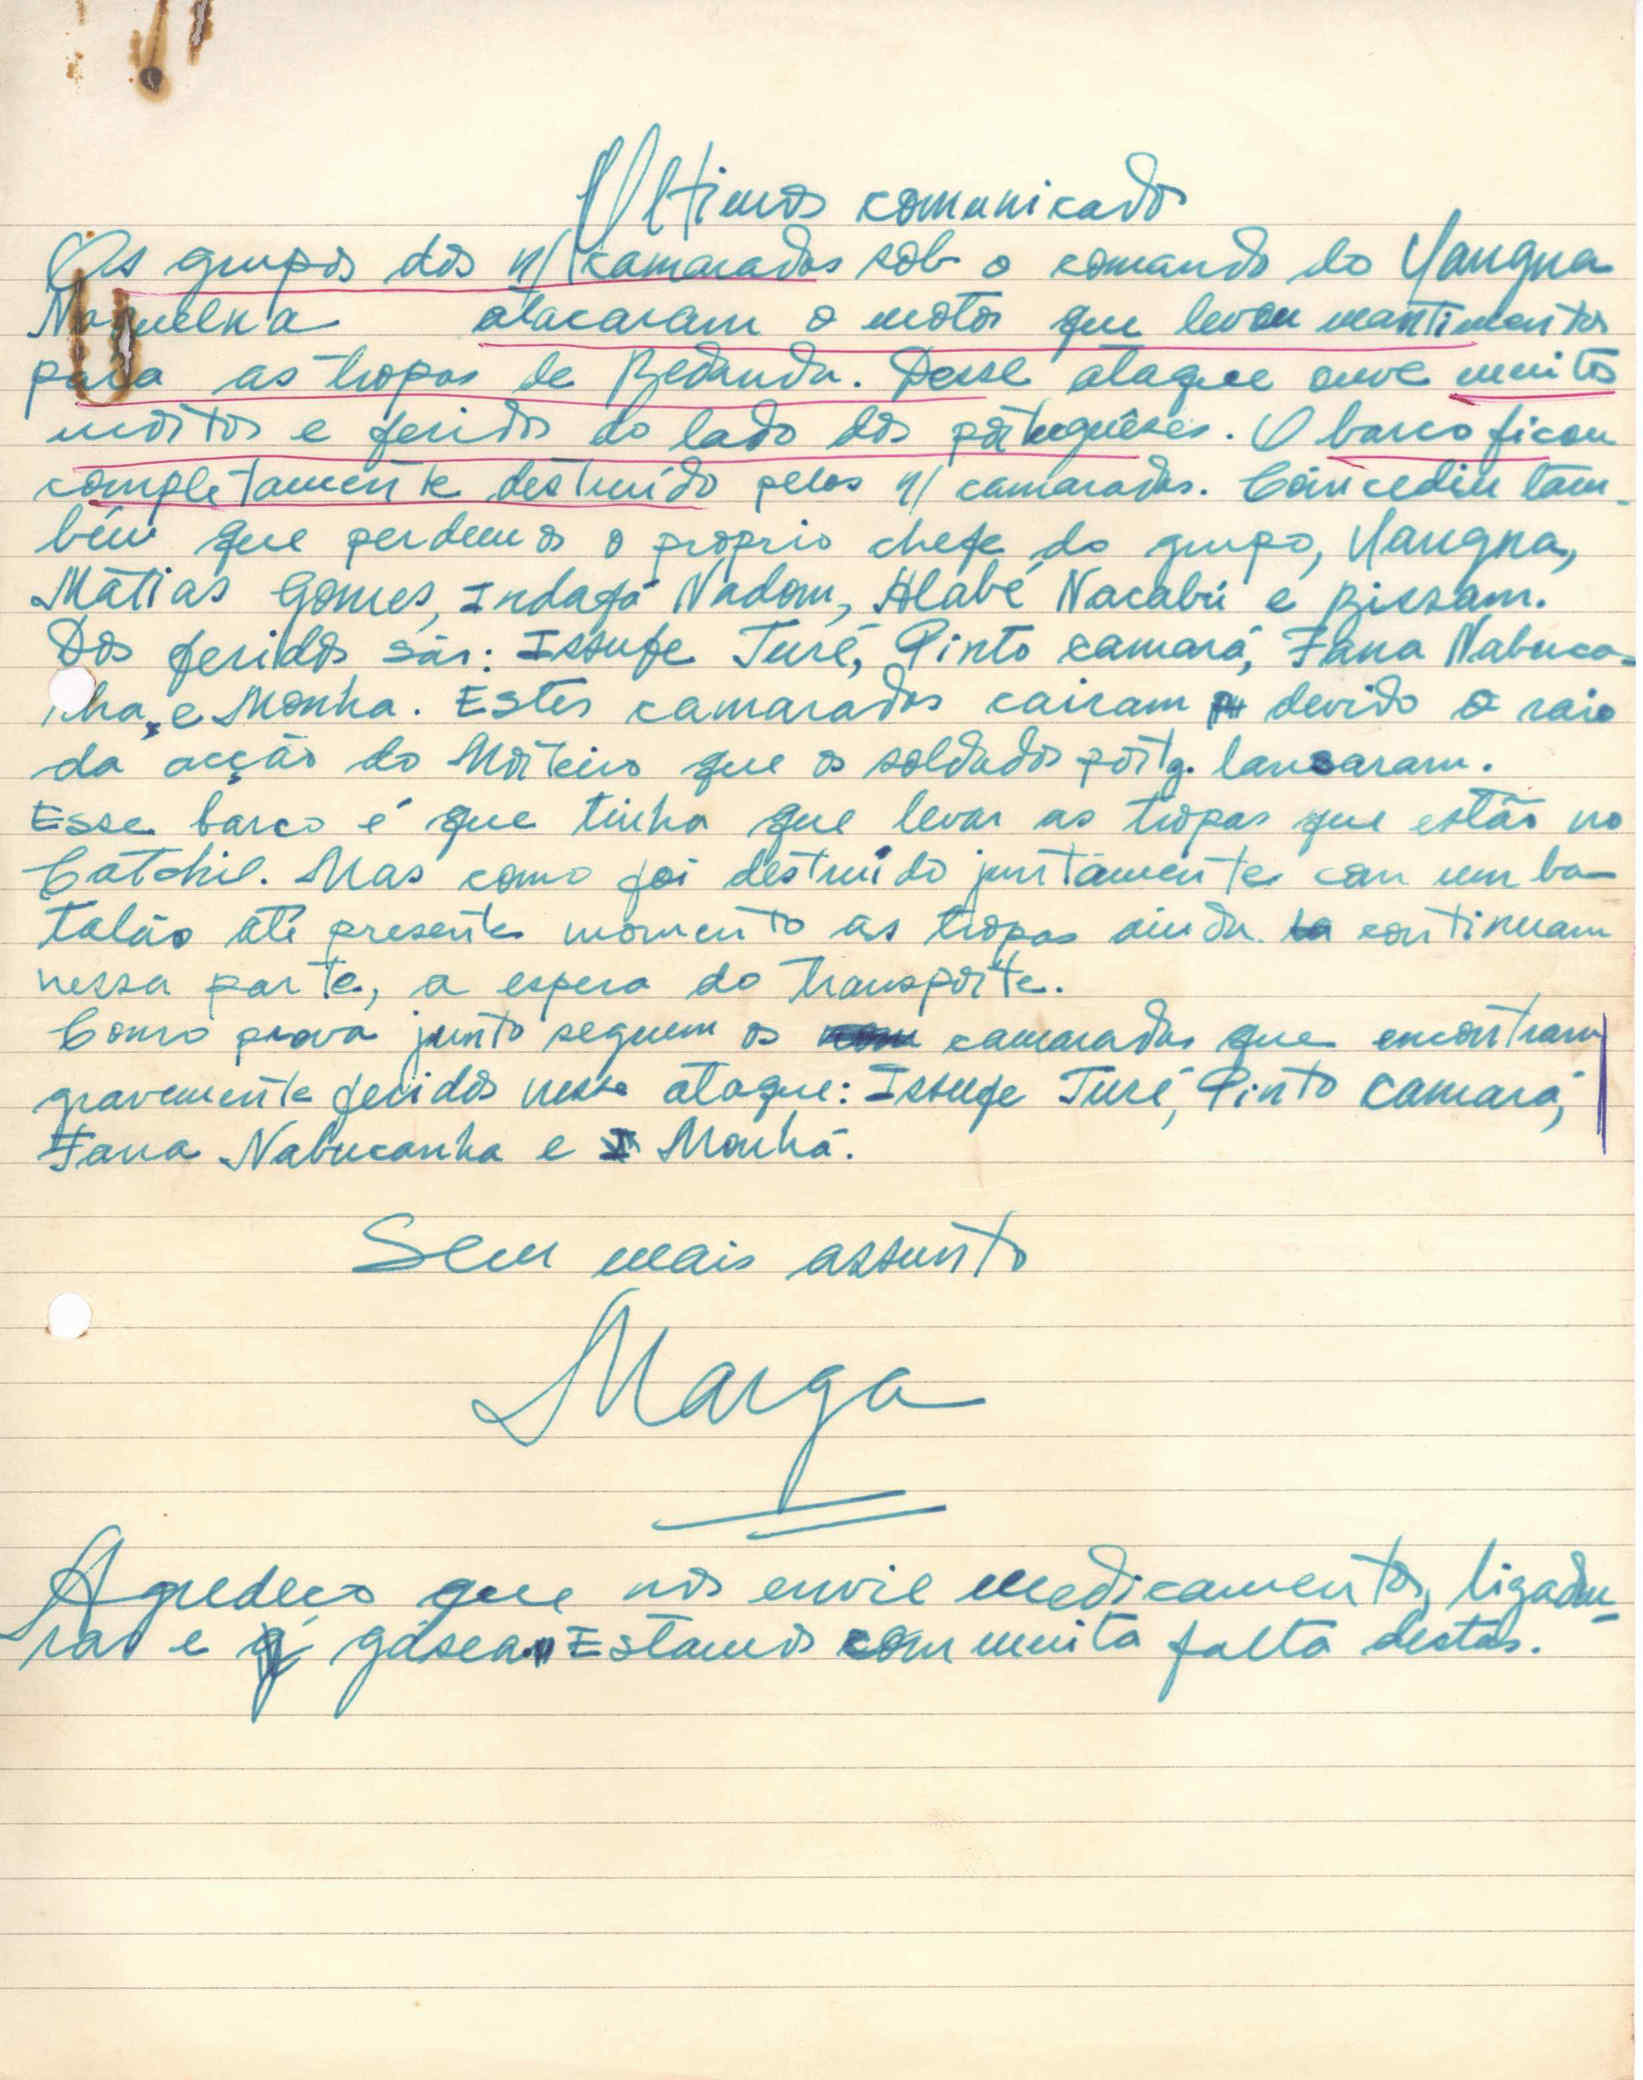 Ultimos comunicados
Os grupos dos n/ camaradas sob o comando do Yangna
Naquelna atacaram o motor que levou mantimentos
para as tropas de Bedanda. Desse ataque ouve muitos
mortos e feridos do lado dos portuguêses. O barco ficou
completamente destruido pelos n/ camaradas. Coincediu tam-
bém que perdemos o proprio chefe do grupo, Yangna,
Matias Gomes, Indafá Nadom, Alabé Nacabú e Bissam.
Dos feridos são: Issufe Turé, Pinto Camará, Fana Nabuca-
nha, e Monha. Estes camaradas cairam devido o raio
da acção do Morteiro que os soldados portg. lansaram.
Esse barco é que tinha que levar as tropas que estão no
Catchil. Mas como foi destruido juntamente com um ba-
talão até presente momento as tropas ainda continuam
nessa parte, a espera do transporte.
Como prova junto seguem os camaradas que encontram
gravemente feridos nesse ataque: Issufe Turé, Pinto Camará,
Fana Nabucanha e Monhá.
Sem mais assunto
Marga
Agredeço que nos envie medicamentos, ligadu-
ras e gásea. Estamos com muita falta destas.